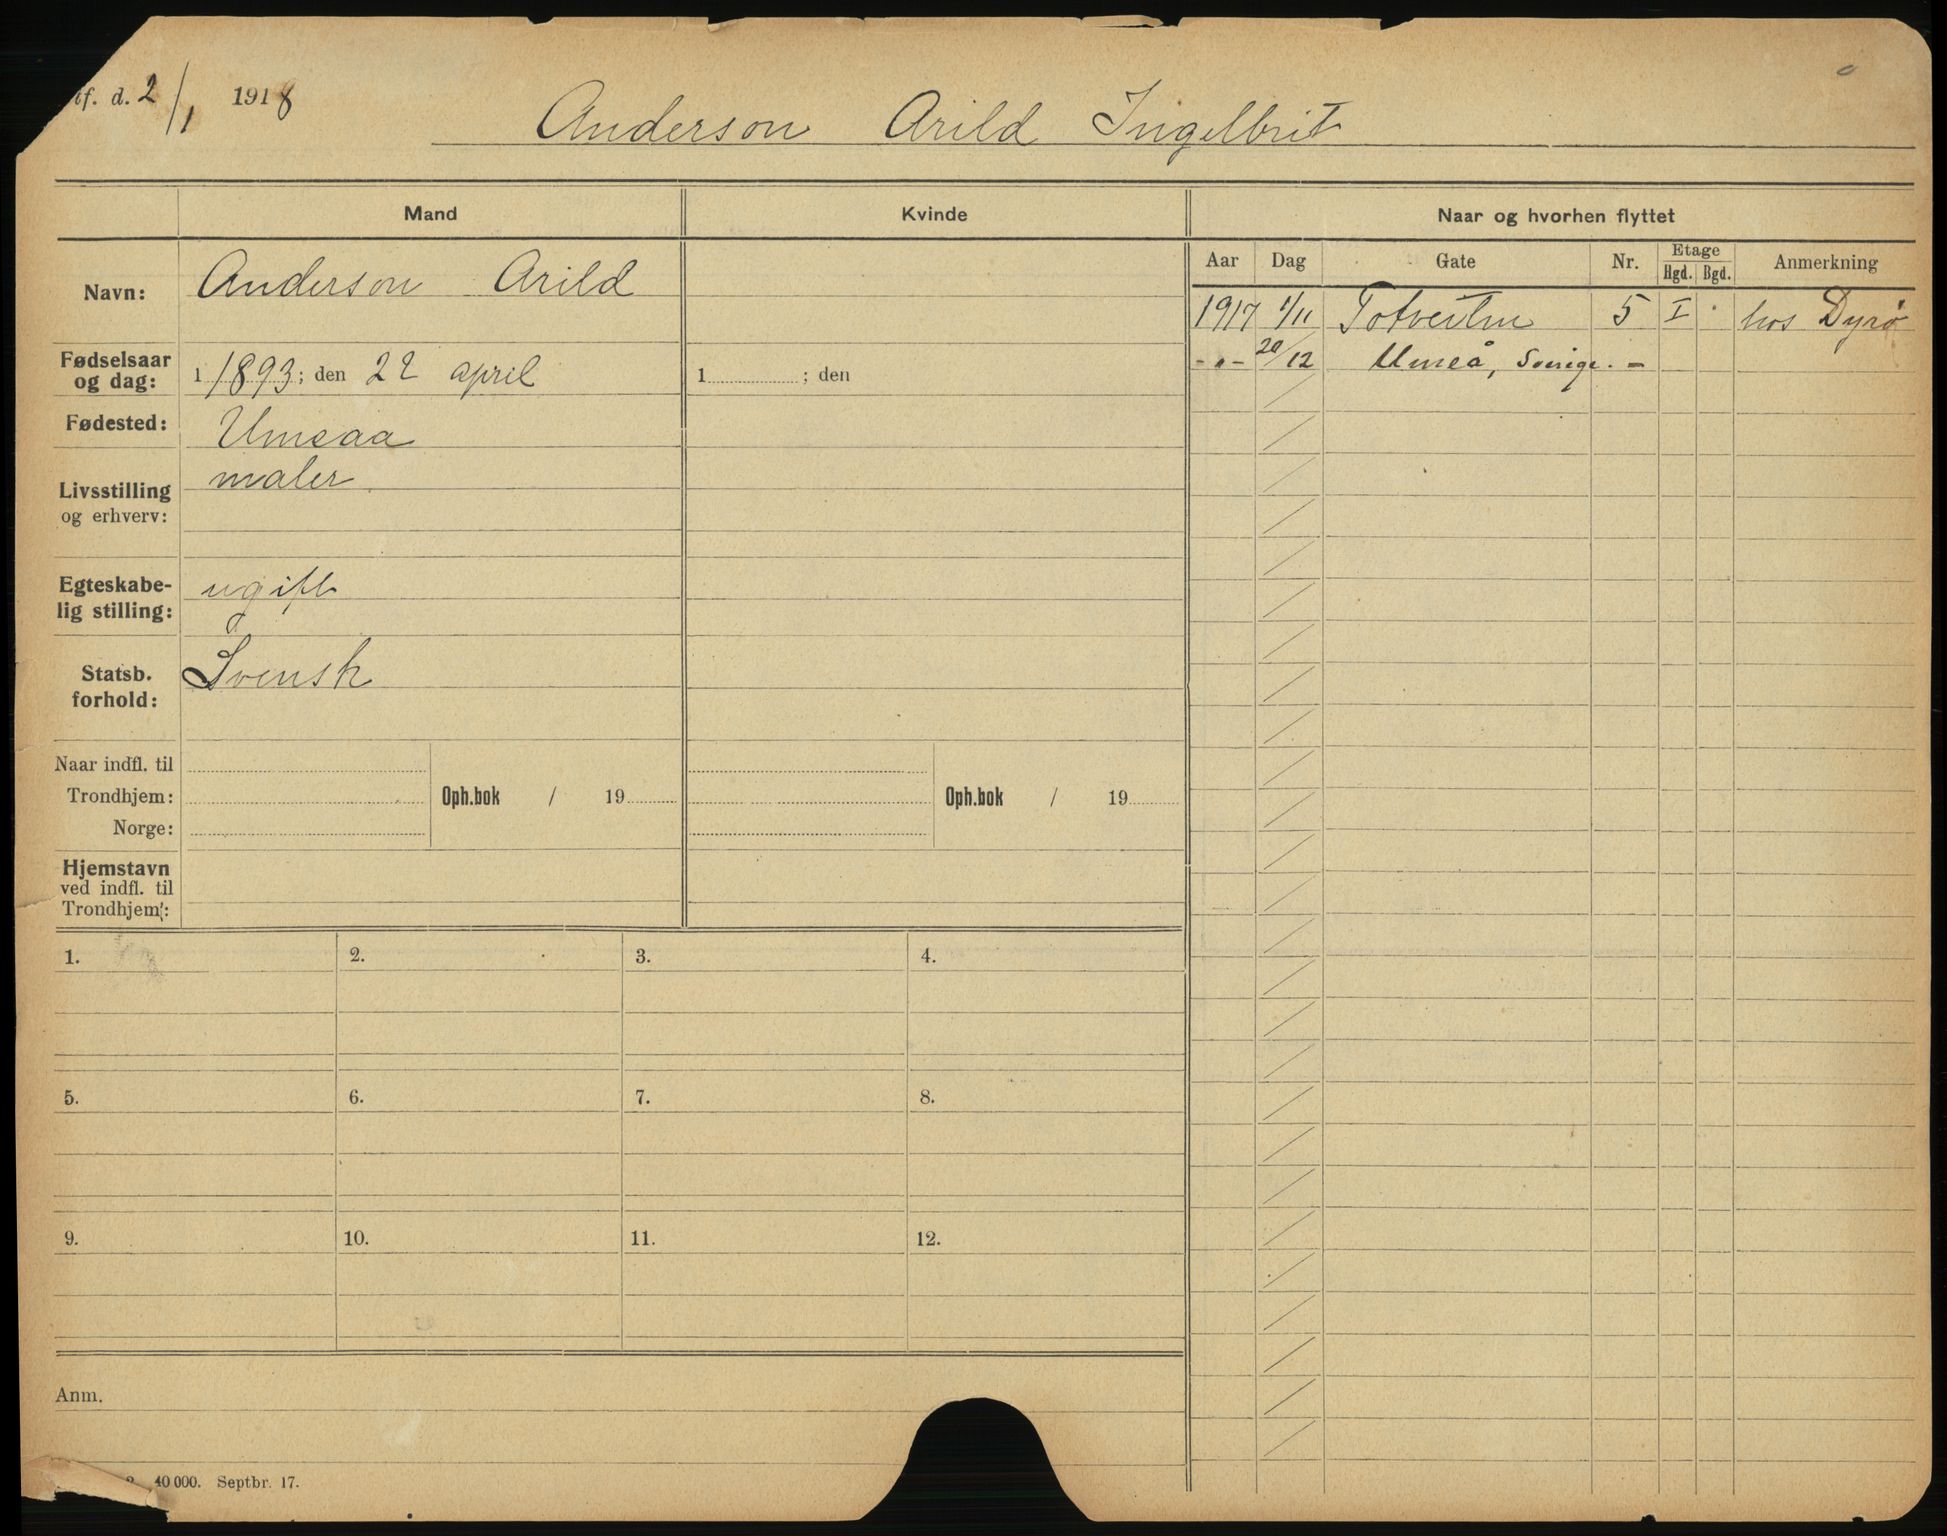 tf. d. 2/1 1918
Anderson Arild Ingelbrit
Mand Kvinde Naar og hvorhen flyttet
Aar Dag Gate Nr. Etage Hgd. Bgd. Anmerkning
Navn: Anderson Arild
1917 1/11 5 I hos Dyrø
Fødselsaar og dag: 1 1893; den 22 april 1 ; den
-"- 20/12 Umeå, Sverige. -
Fødested: Umeaa
Livsstilling og erhverv: maler
Egteskabe-
lig stilling: ugift
Statsb.
forhold: Svensk
Naar indfl. til
Trondhjem: Oph.bok / 19 Oph.bok / 19
Norge:
Hjemstavn
ved indfl. til
Trondhjem:
1. 2. 3. 4.
5. 6. 7. 8.
9. 10. 11. 12.
Anm.
40 000. Septbr. 17.